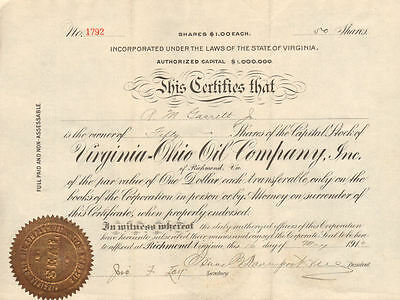 No. 1792 SHARES $1.00 EACH. 50 Shares
INCORPORATED UNDER THE LAWS OF THE STATE OF VIRGINIA.
AUTHORIZED CAPITAL $1,000,000
This Certifies that
R. M. Garrett Jr
is the owner of Fifty Shares of the Capital Stock of
Virginia-Ohio Oil Company, Inc.
of Richmond, Va.
of the par value of One Dollar each, transferable only on the
books of the Corporation in person or by Attorney on surrender of
this Certificate, when properly endorsed.
In witness whereof the duly authorized officers of this Corporation
have hereunto subscribed their names and caused the Corporate Seal to be
affixed at Richmond, Virginia this 16 day of May 191
Secretary President
FULL PAID AND NON-ASSESSABLE